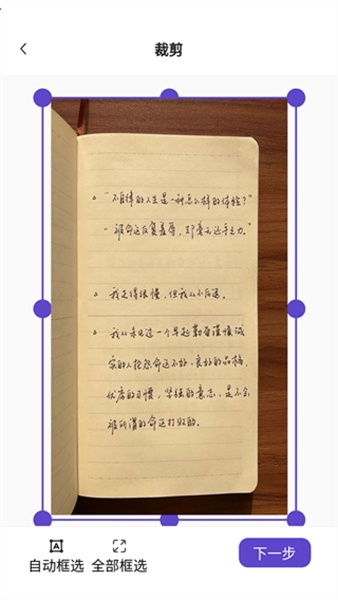 裁剪
。“不自律的人生是一种怎么样的体验？”
－被命运反复羞辱，却毫无还手之力。”
。我走得很慢，但我从不后退。
。我从未见过一个早起勤奋谨慎诚
实的人抱怨命运不好，良好的品格，
优良的习惯，坚强的意志，是不会
被所谓的命运打败的。
A
自动框选 全部框选 下一步